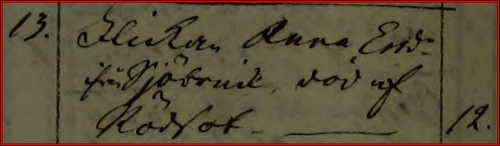 13. Flickan Anna Ers-
från Sjöbruk, död af
Rödsot. 12.